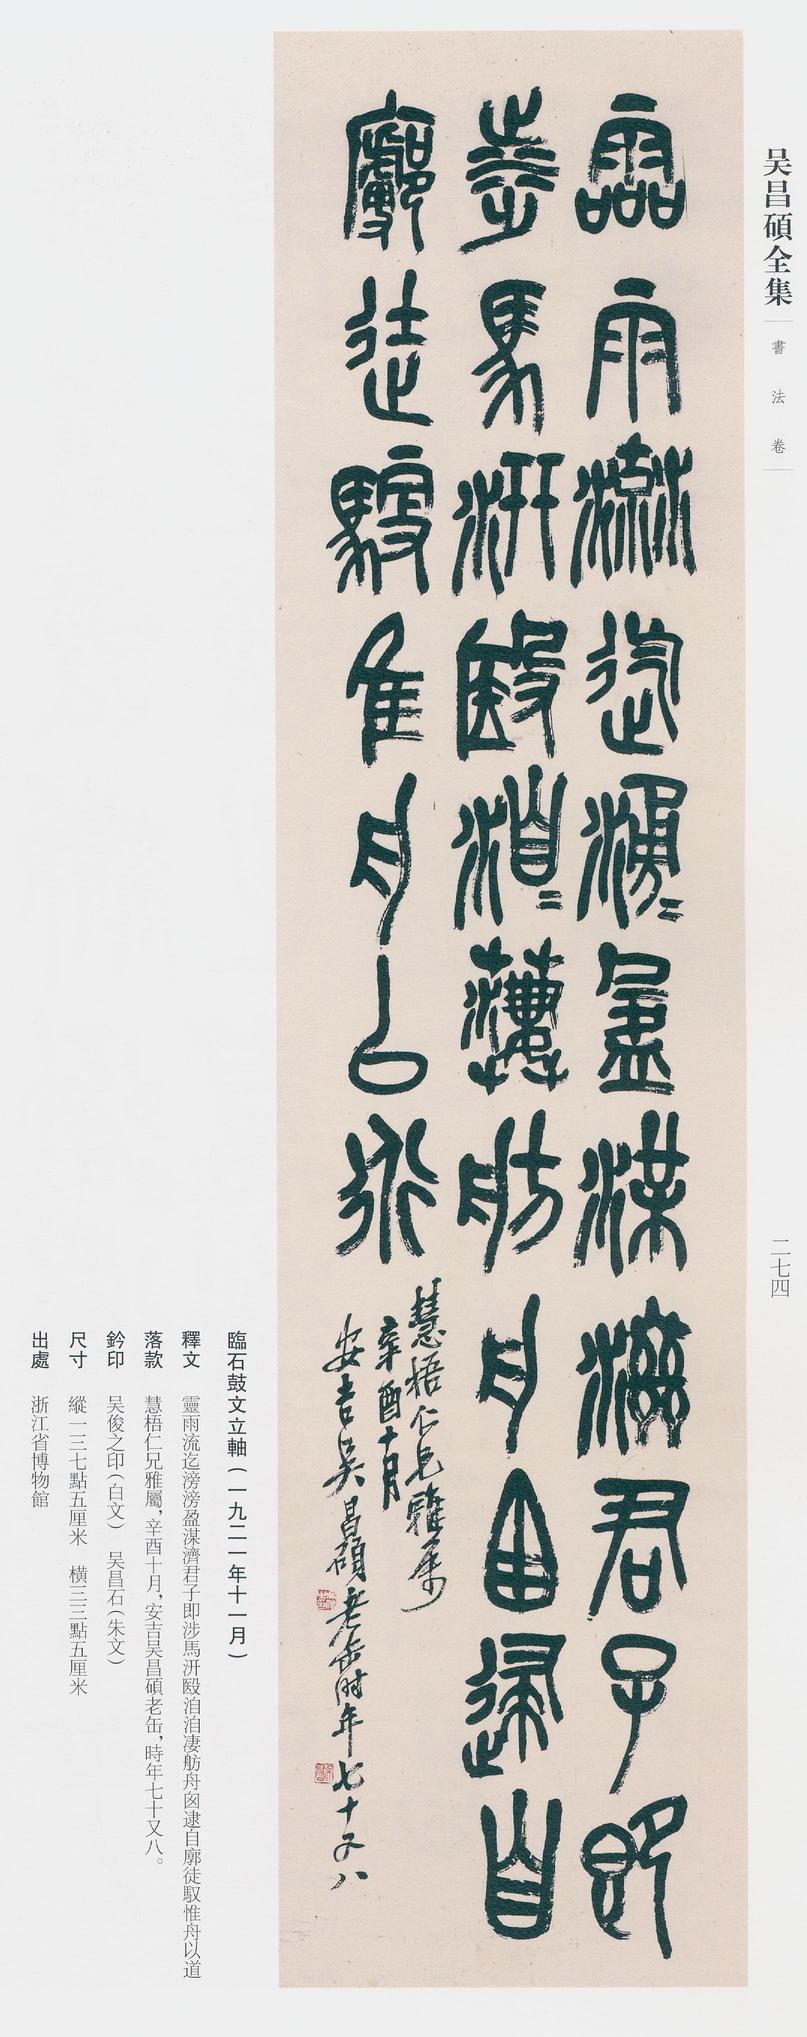 吴昌碩全集
書法卷
二七四
靈雨流迄滂〻盈渫濟君子即
涉馬汧殹洎〻淒舫舟囪逮自
廓徒馭惟舟以道
慧梧仁兄雅屬
辛酉十月
安吉吳昌碩老缶時年七十又八
臨石鼓文立軸（一九二一年十一月）
釋文 靈雨流迄滂滂盈渫濟君子即涉馬汧殹洎洎淒舫舟囪逮自廓徒馭惟舟以道
落款 慧梧仁兄雅屬，辛酉十月，安吉吴昌碩老缶，時年七十又八。
鈐印 吴俊之印（白文） 吴昌石（朱文）
尺寸 縱一三七點五厘米 橫三三點五厘米
出處 浙江省博物館